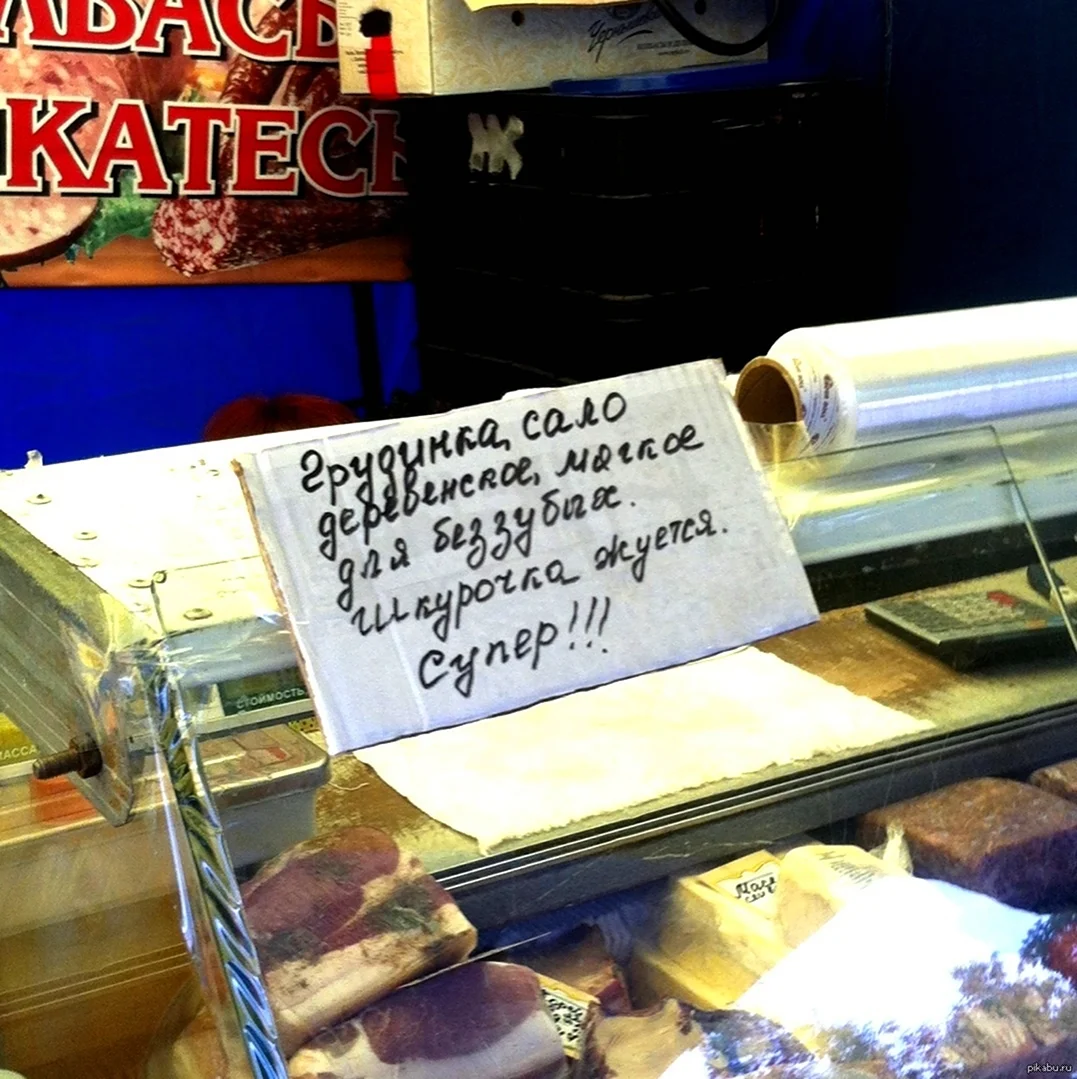 ЛБАСЫ
КАТЕСЫ
Ж
Грудинка, сало
деревенское, мягкое
для беззубых.
Шкурочка жуется.
Супер!!!
СТОИМОСТЬ
МАССА
pikabu.ru